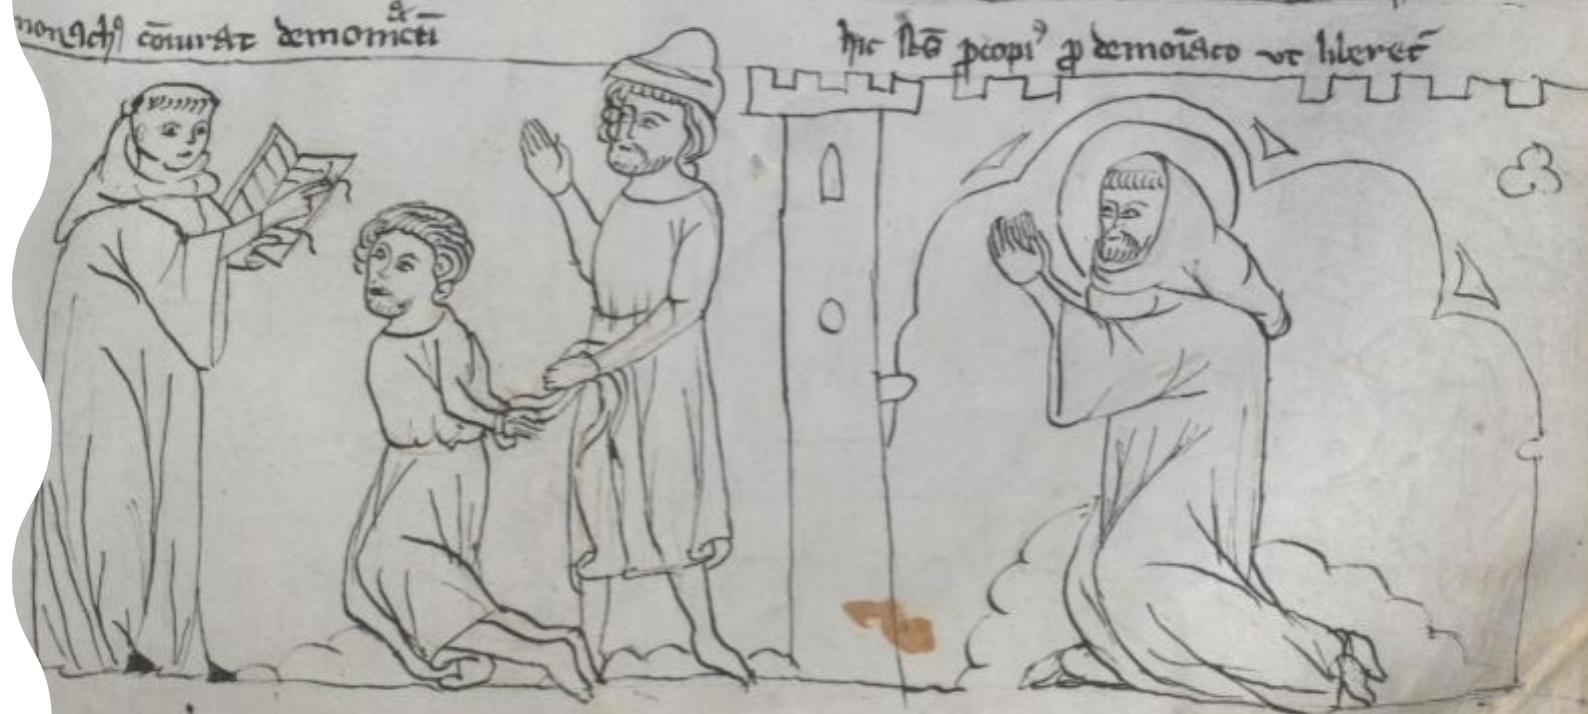 monachꝰ cōiurat demoniactū
hic sctō pcopiꝰ ꝓ demoīaco ut liberet᷑